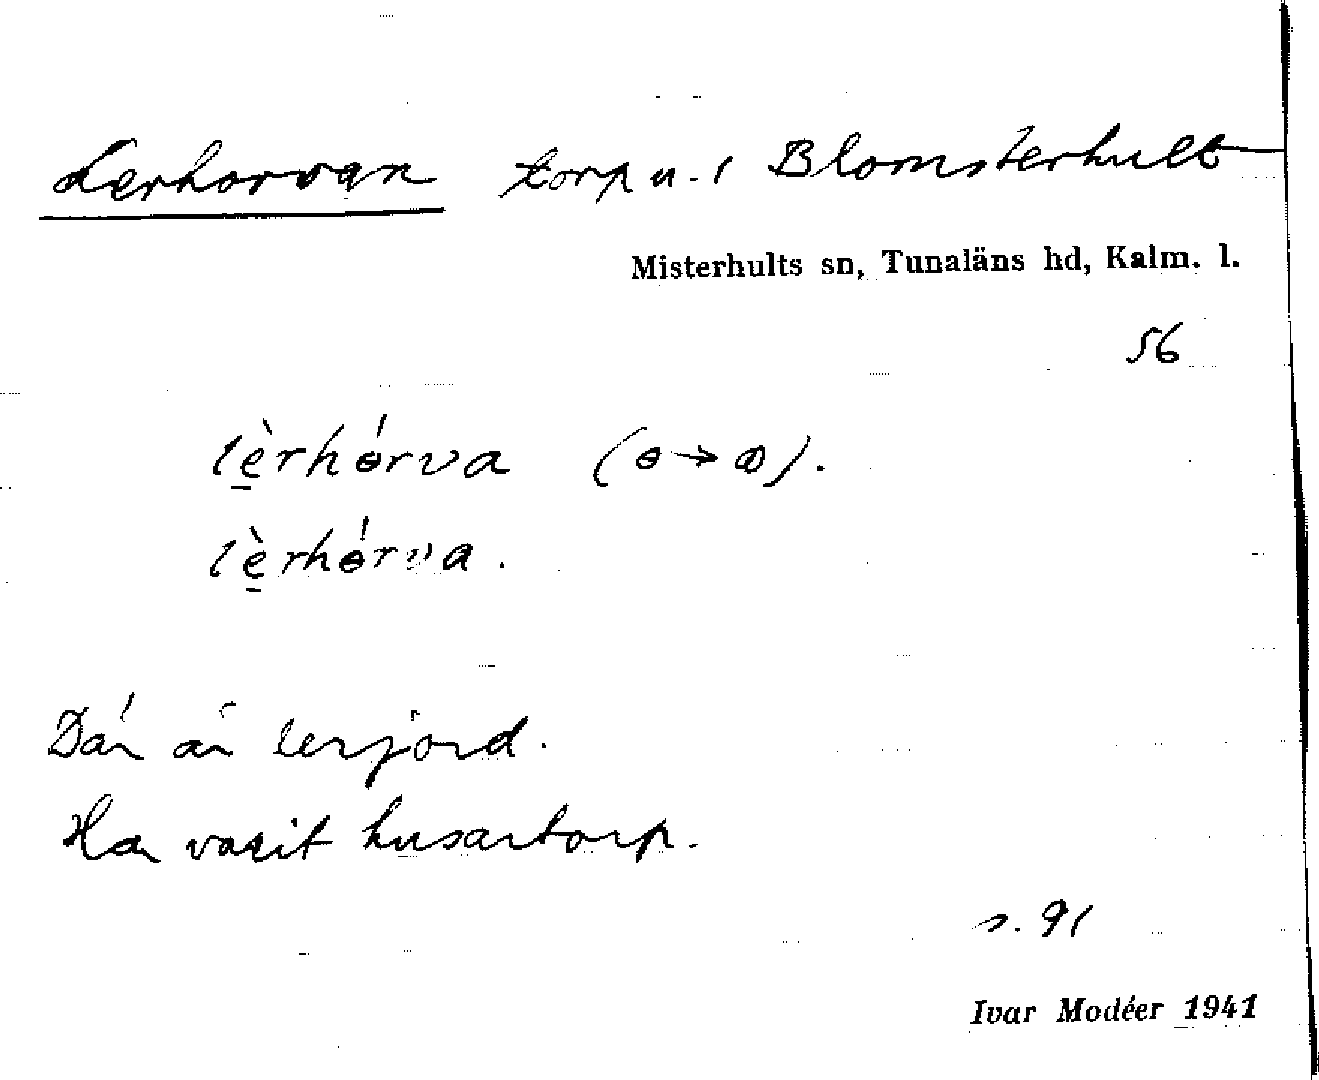 Lerhorvan torp u. 1 Blomsterhult
Misterhults sn, Tunaläns hd, Kalm. l.
56
lè̱rhɵ́rva (ɵ→ꝏ).
lè̱rhɵ́rva.
Där är lerjord.
Har varit husartorp.
s. 91
Ivar Modéer 1941